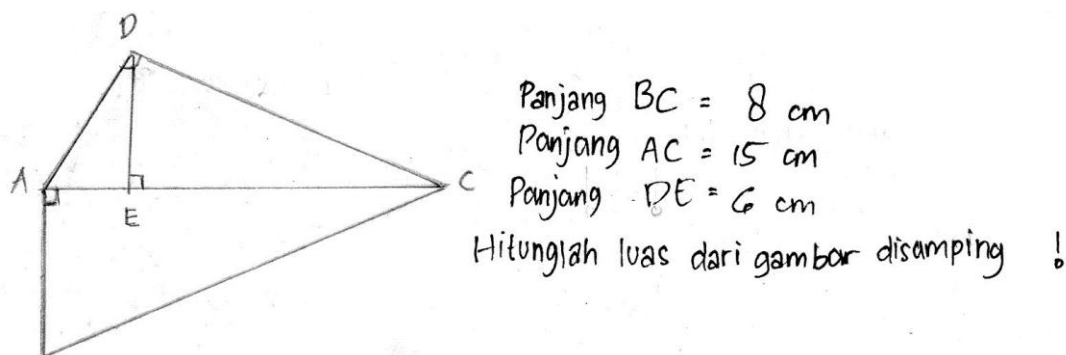 D
A
E
C
Panjang BC = 8 cm
Panjang AC = 15 cm
Panjang DE = 6 cm
Hitunglah luas dari gambar disamping !